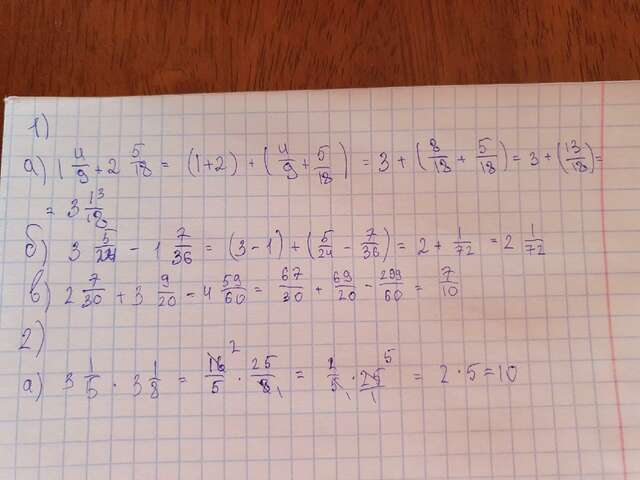 1)
а) 1 4/9 + 2 5/18 = (1+2) + (4/9 + 5/18) = 3 + (8/18 + 5/18) = 3 + (13/18) =
= 3 13/18
б) 3 5/24 - 1 7/36 = (3-1) + (5/24 - 7/36) = 2 + 1/72 = 2 1/72
в) 2 7/30 + 3 9/20 - 4 59/60 = 67/30 + 69/20 - 299/60 = 7/10
2)
а) 3 1/5 · 3 1/8 = 16 2/5 · 25/8 1 = 2/5 1 · 25 5/1 = 2 · 5 = 10